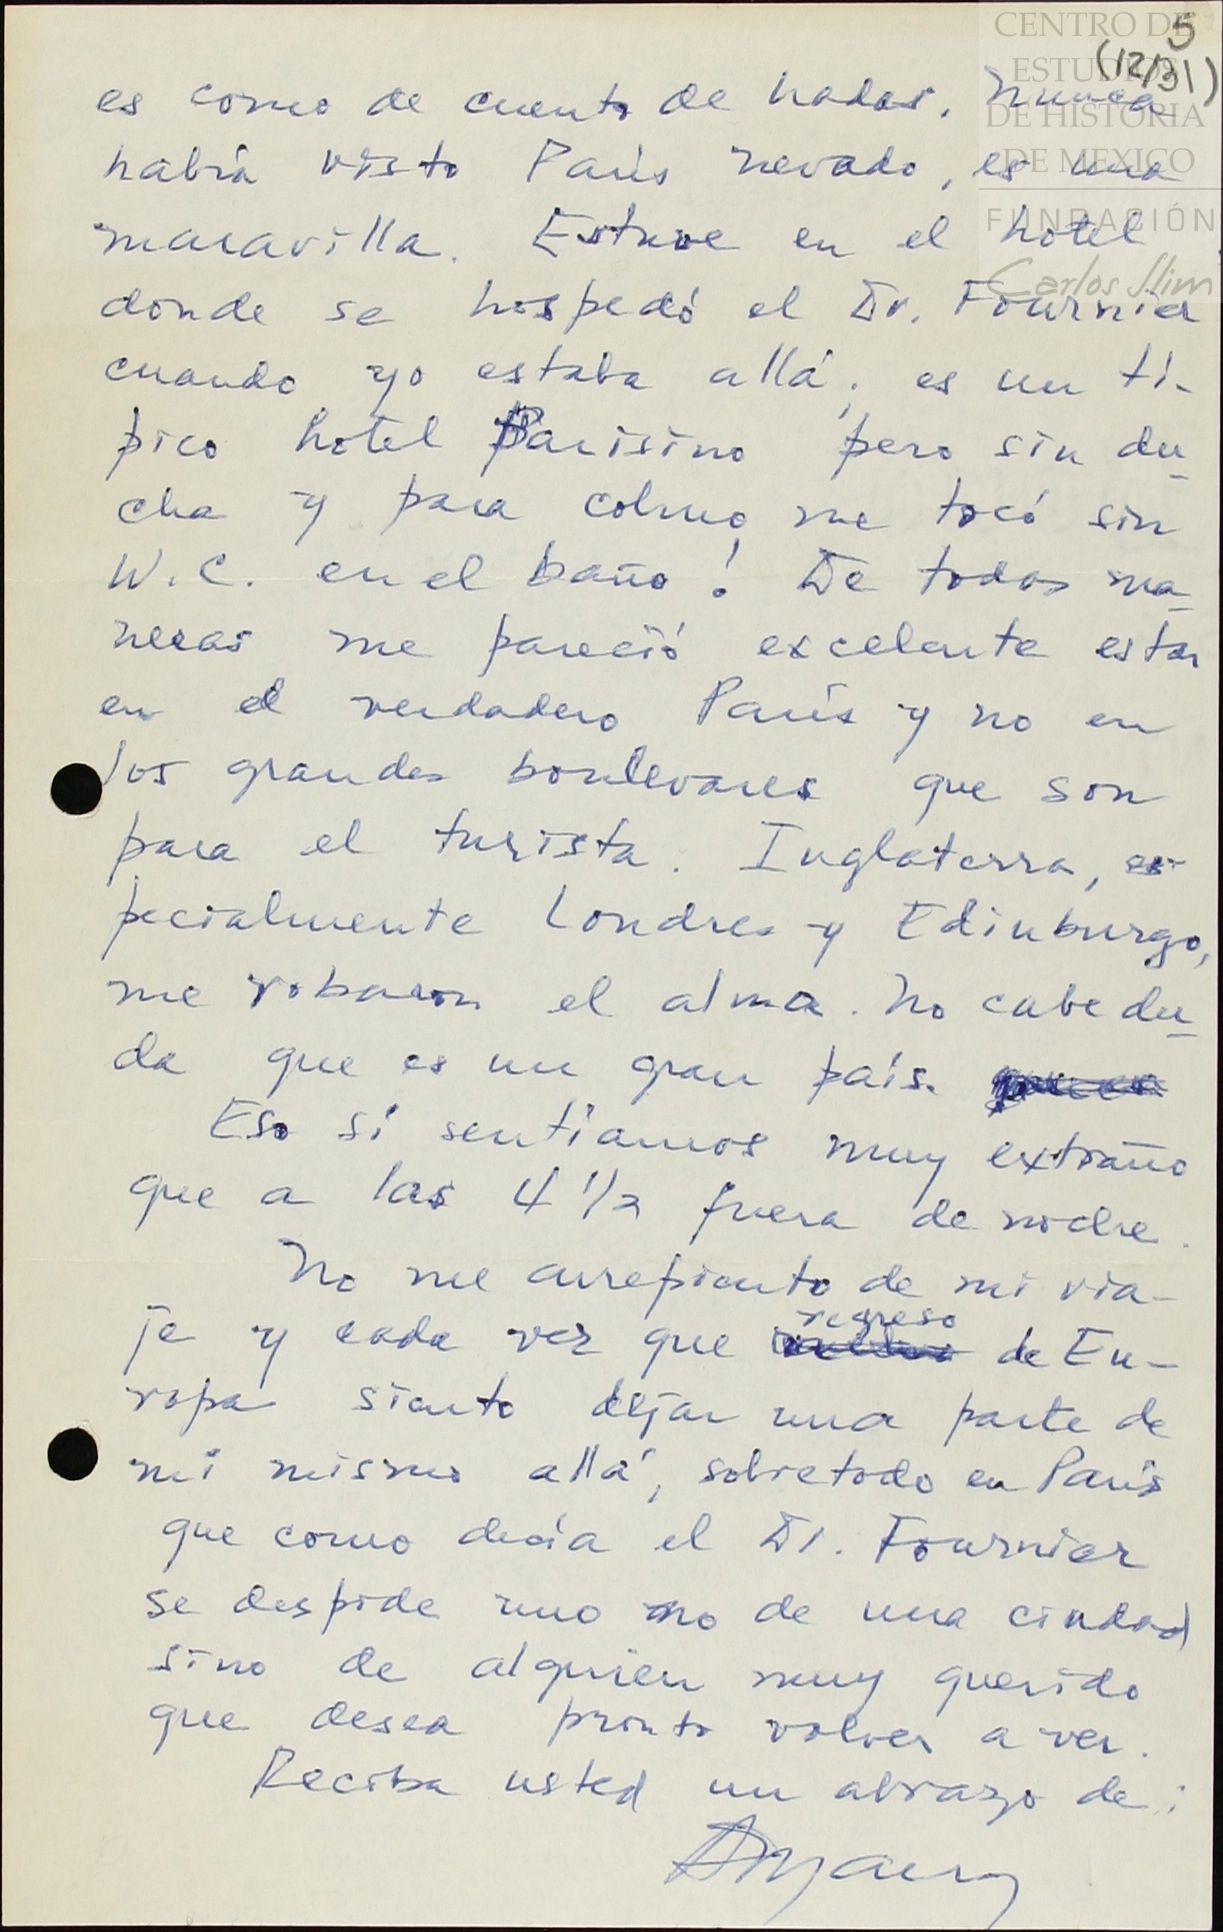 5
(12/31)
CENTRO DE
ESTUDIOS
DE HISTORIA
DE MEXICO
FUNDACIÓN
Carlos Slim
es como de cuento de hadas. Nunca
había visto París nevado, es una
maravilla. Estuve en el hotel
donde se hospedó el Dr. Fournier
cuando yo estaba allá; es un tí-
pico hotel Parisino, pero sin du-
cha y para colmo me tocó sin
W.C. en el baño! De todas ma-
neras me pareció excelente estar
en el verdadero París y no en
los grandes boulevares que son
para el turista. Inglaterra, es-
pecialmente Londres y Edinburgo,
me robaron el alma. No cabe du-
da que es un gran país.
Eso sí sentíamos muy extraño
que a las 4 1/2 fuera de noche.
No me arrepiento de mi via-
je y cada vez que regreso de Eu-
ropa siento dejar una parte de
mi mismo allá, sobretodo en París
que como decía el Dr. Fournier
se despide uno no de una ciudad
sino de alguien muy querido
que desea pronto volver a ver.
Reciba usted un abrazo de: